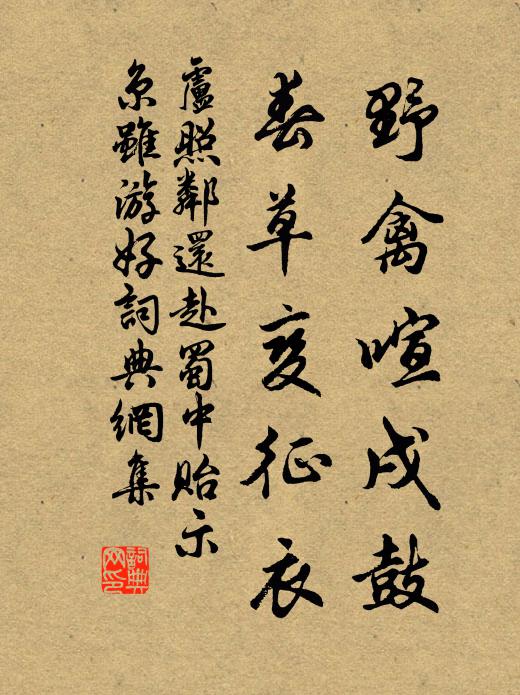 野禽喧戍鼓
春草变征衣
盧照鄰還赴蜀中貽示
京雖游好詞典網集
詞典
网印